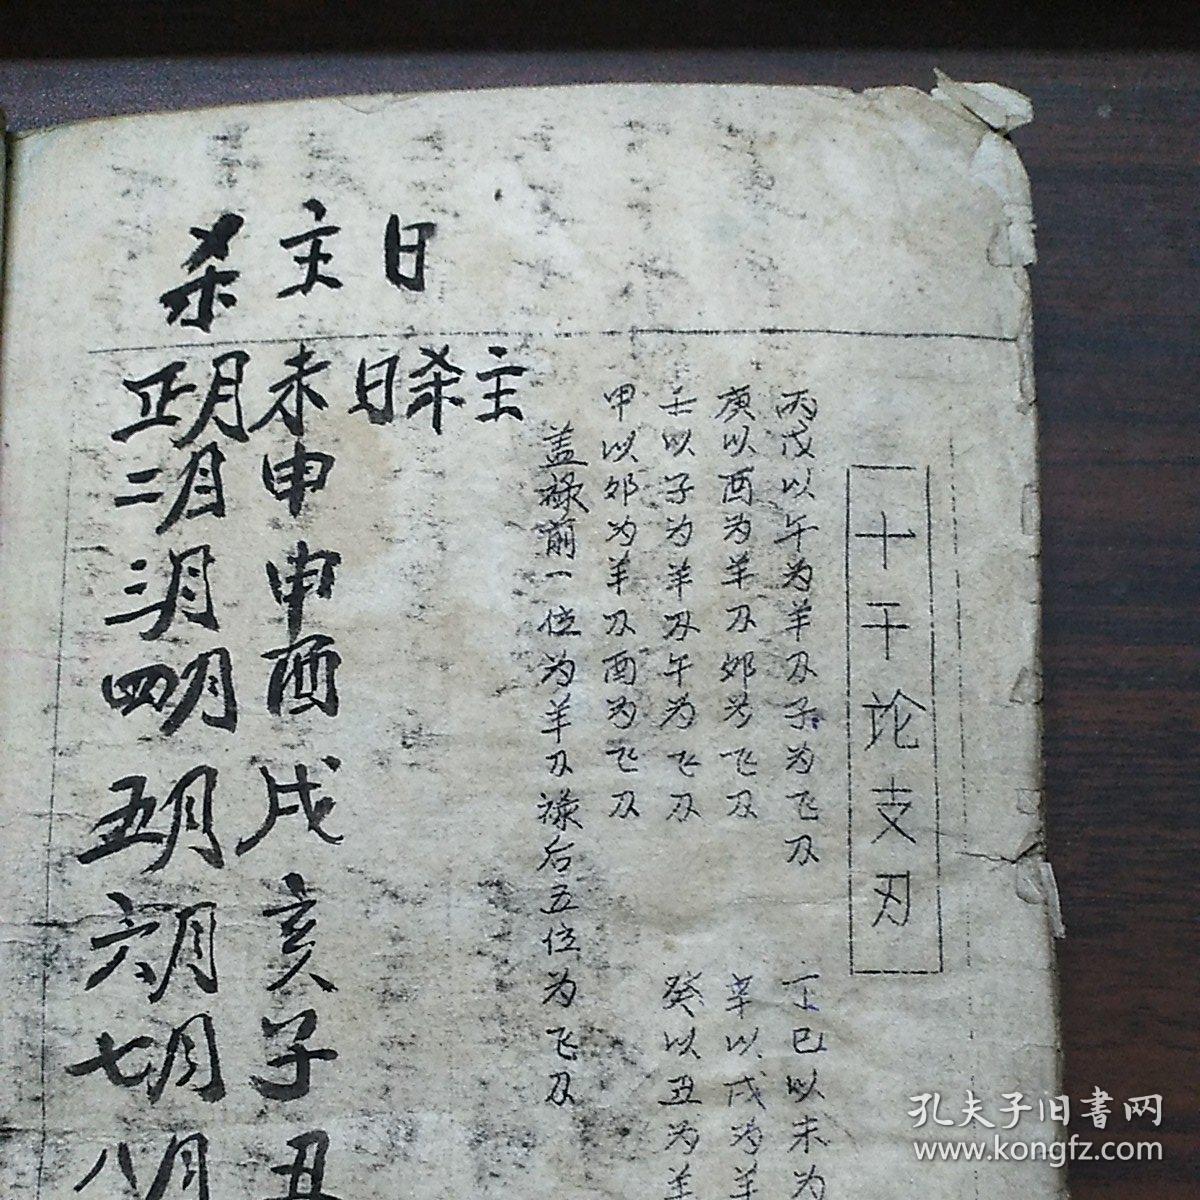 十干论支刃
丙戊以午为羊刃子为飞刃
丁巳以未为
庚以酉为羊刃卯为飞刃
辛以戌为羊
壬以子为羊刃午为飞刃
癸以丑为羊
甲以卯为羊刃酉为飞刃
盖禄前一位为羊刃禄后五位为飞刃
日主杀
主杀日
未申申酉戌亥子丑
正月二月三月四月五月六月七月八月
孔夫子旧書网
www.kongfz.com